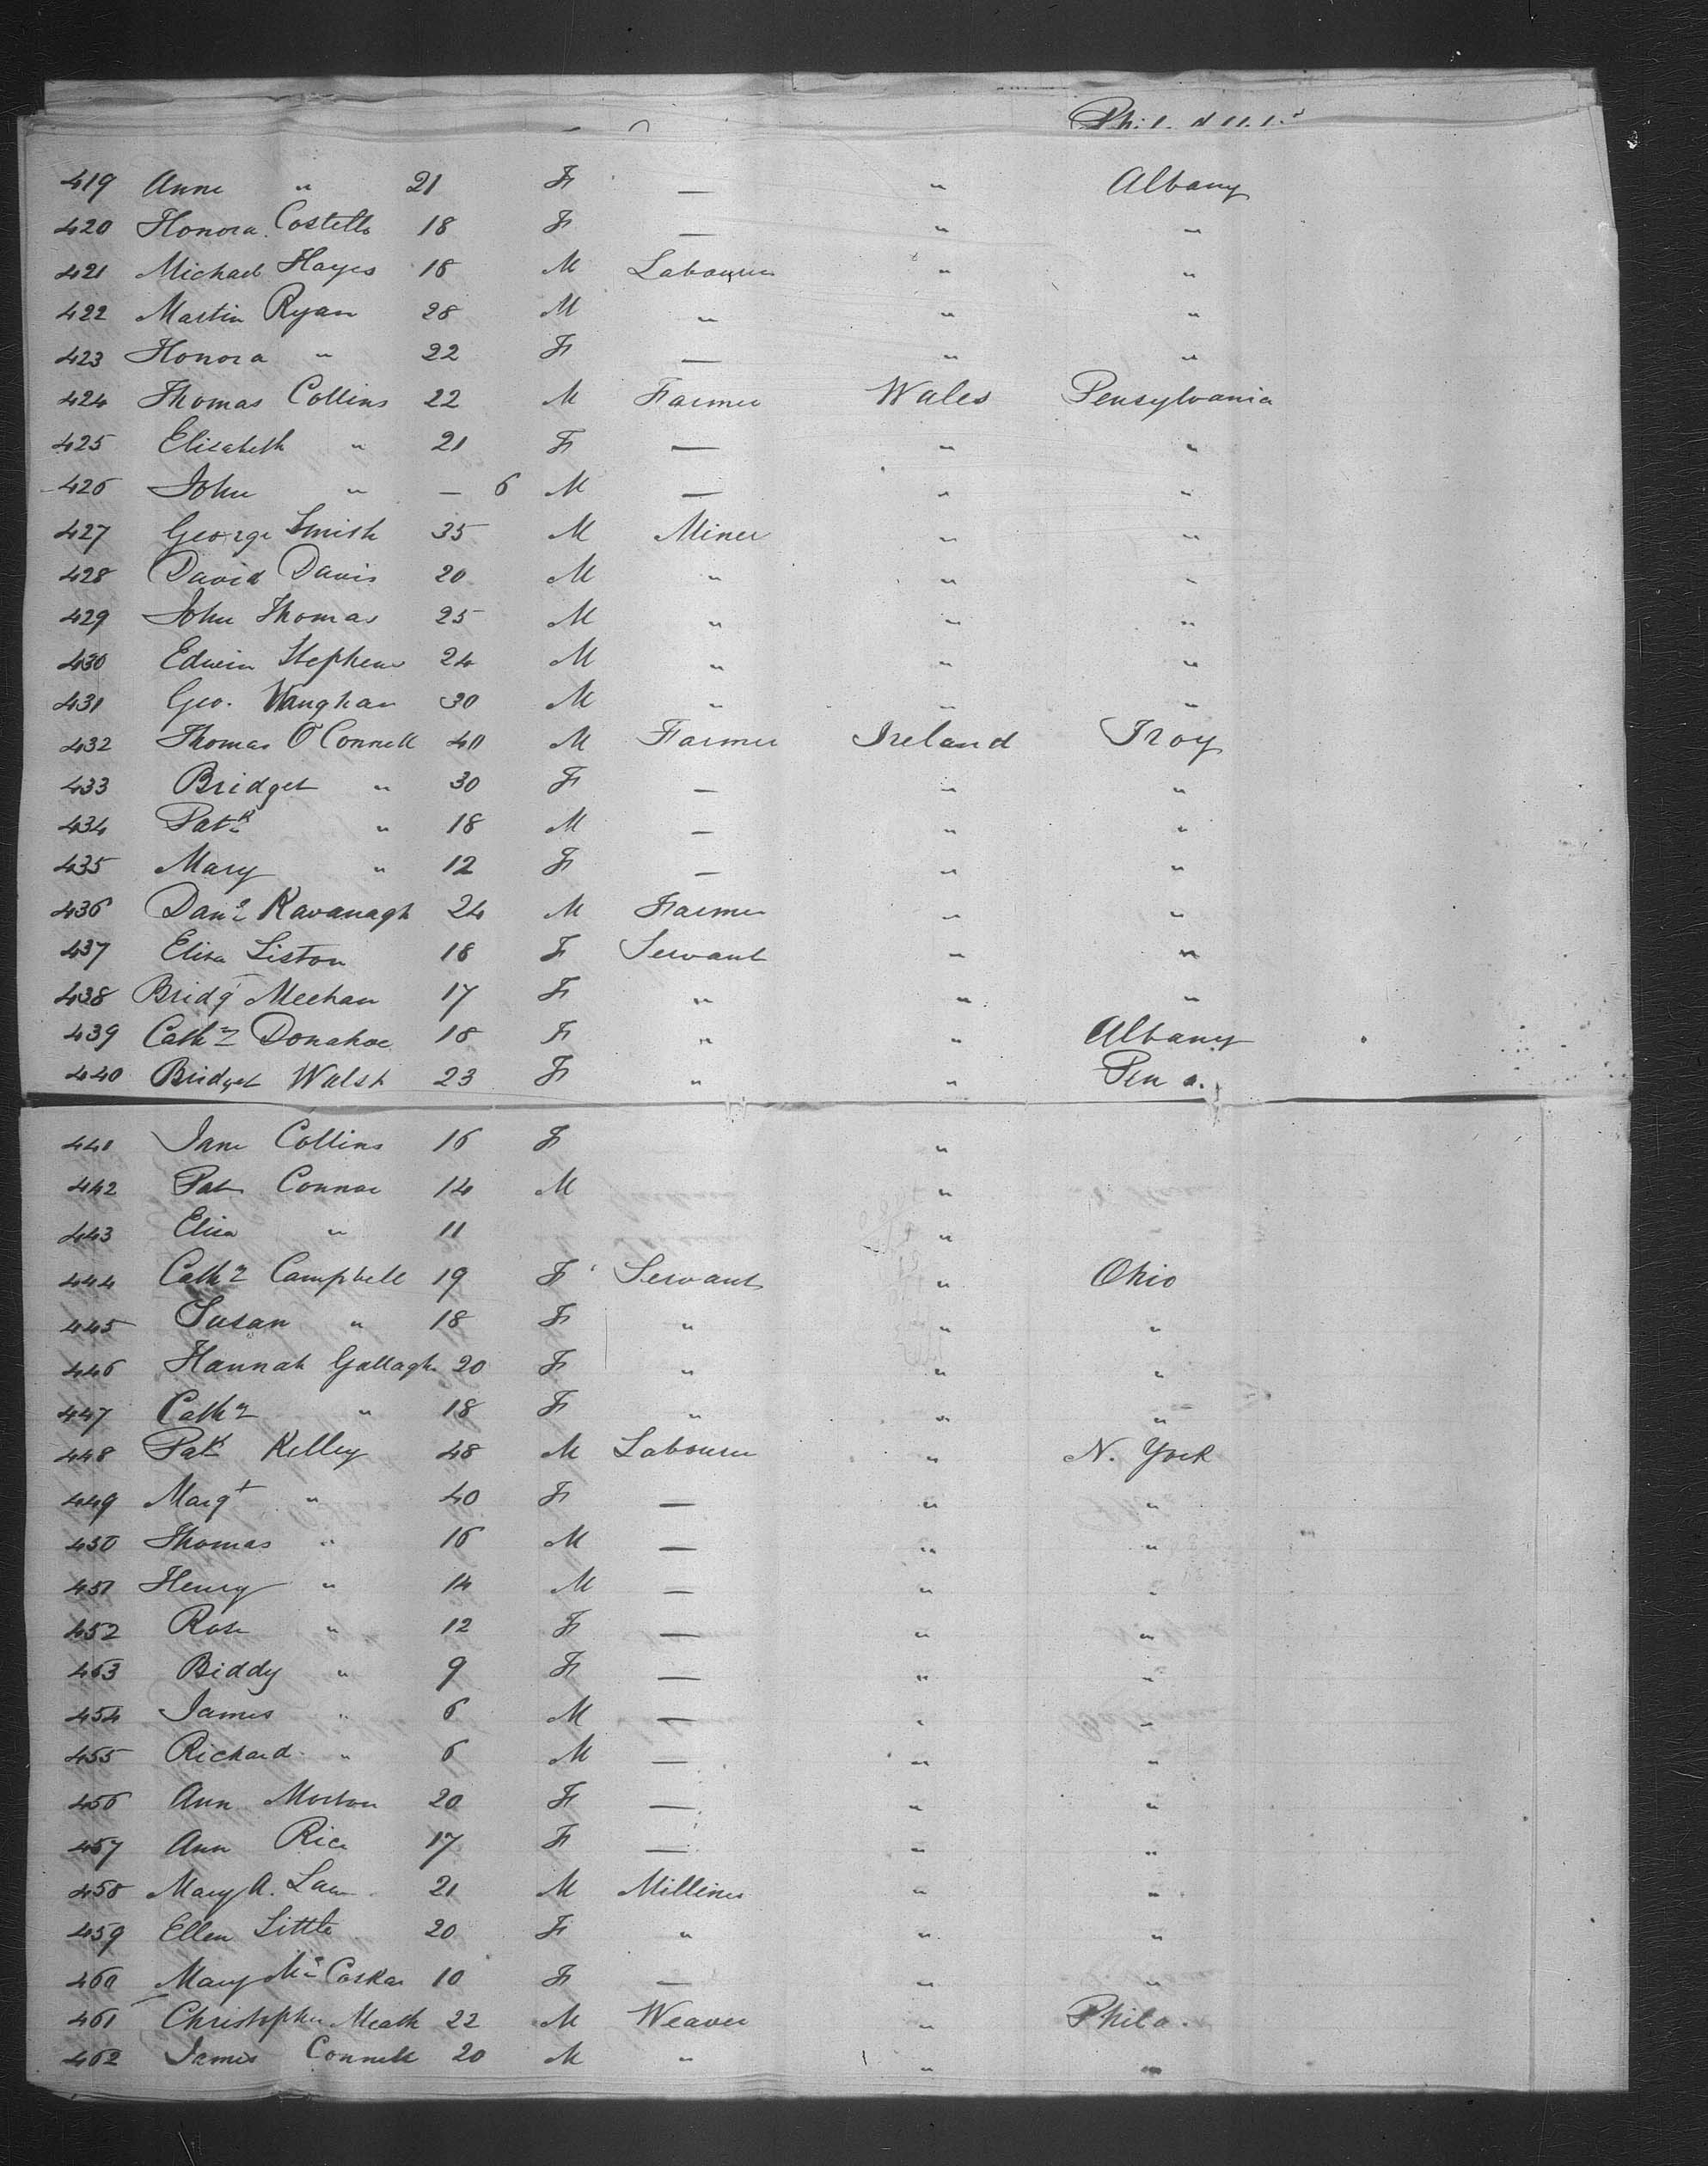 419 Anne " 21 F — " Albany
420 Honora Costello 18 F — " "
421 Michael Hayes 18 M Labourer " "
422 Martin Ryan 28 M " " "
423 Honora " 22 F — " "
424 Thomas Collins 22 M Farmer Wales Pensylvania
425 Elizabeth " 21 F — " "
426 John " — 6 M — " "
427 George Smith 35 M Miner " "
428 David Davis 20 M " " "
429 John Thomas 25 M " " "
430 Edwin Stephens 24 M " " "
431 Geo. Vaughan 30 M " " "
432 Thomas O'Connell 40 M Farmer Ireland Troy
433 Bridget " 30 F — " "
434 Patk " 18 M — " "
435 Mary " 12 F — " "
436 Danl Kavanagh 24 M Farmer " "
437 Eliza Liston 18 F Servant " "
438 Bridgt Meehan 17 F " " "
439 Cathn Donahoe 18 F " " Albany
440 Bridget Walsh 23 F " " Pen a.
441 Jane Collins 16 F "
442 Pat Connor 14 M "
443 Eliza " 11 "
444 Cathn Campbell 19 F Servant " Ohio
445 Susan " 18 F " " "
446 Hannah Gallagh 20 F " " "
447 Cathn " 18 F " " "
448 Patk Kelley 48 M Labourer " N. York
449 Margt " 40 F — " "
450 Thomas " 16 M — " "
451 Henry " 14 M — " "
452 Rose " 12 F — " "
453 Biddy " 9 F — " "
454 James " 6 M — " "
455 Richard " 6 M — " "
456 Ann Morton 20 F — " "
457 Ann Rice 17 F — " "
458 Mary A. 21 M Milliner " "
459 Ellen Little 20 F " " "
460 Mary McCoskar 10 F — " "
461 Christopher Meath 22 M Weaver " Phila.
462 James Connell 20 M " " "